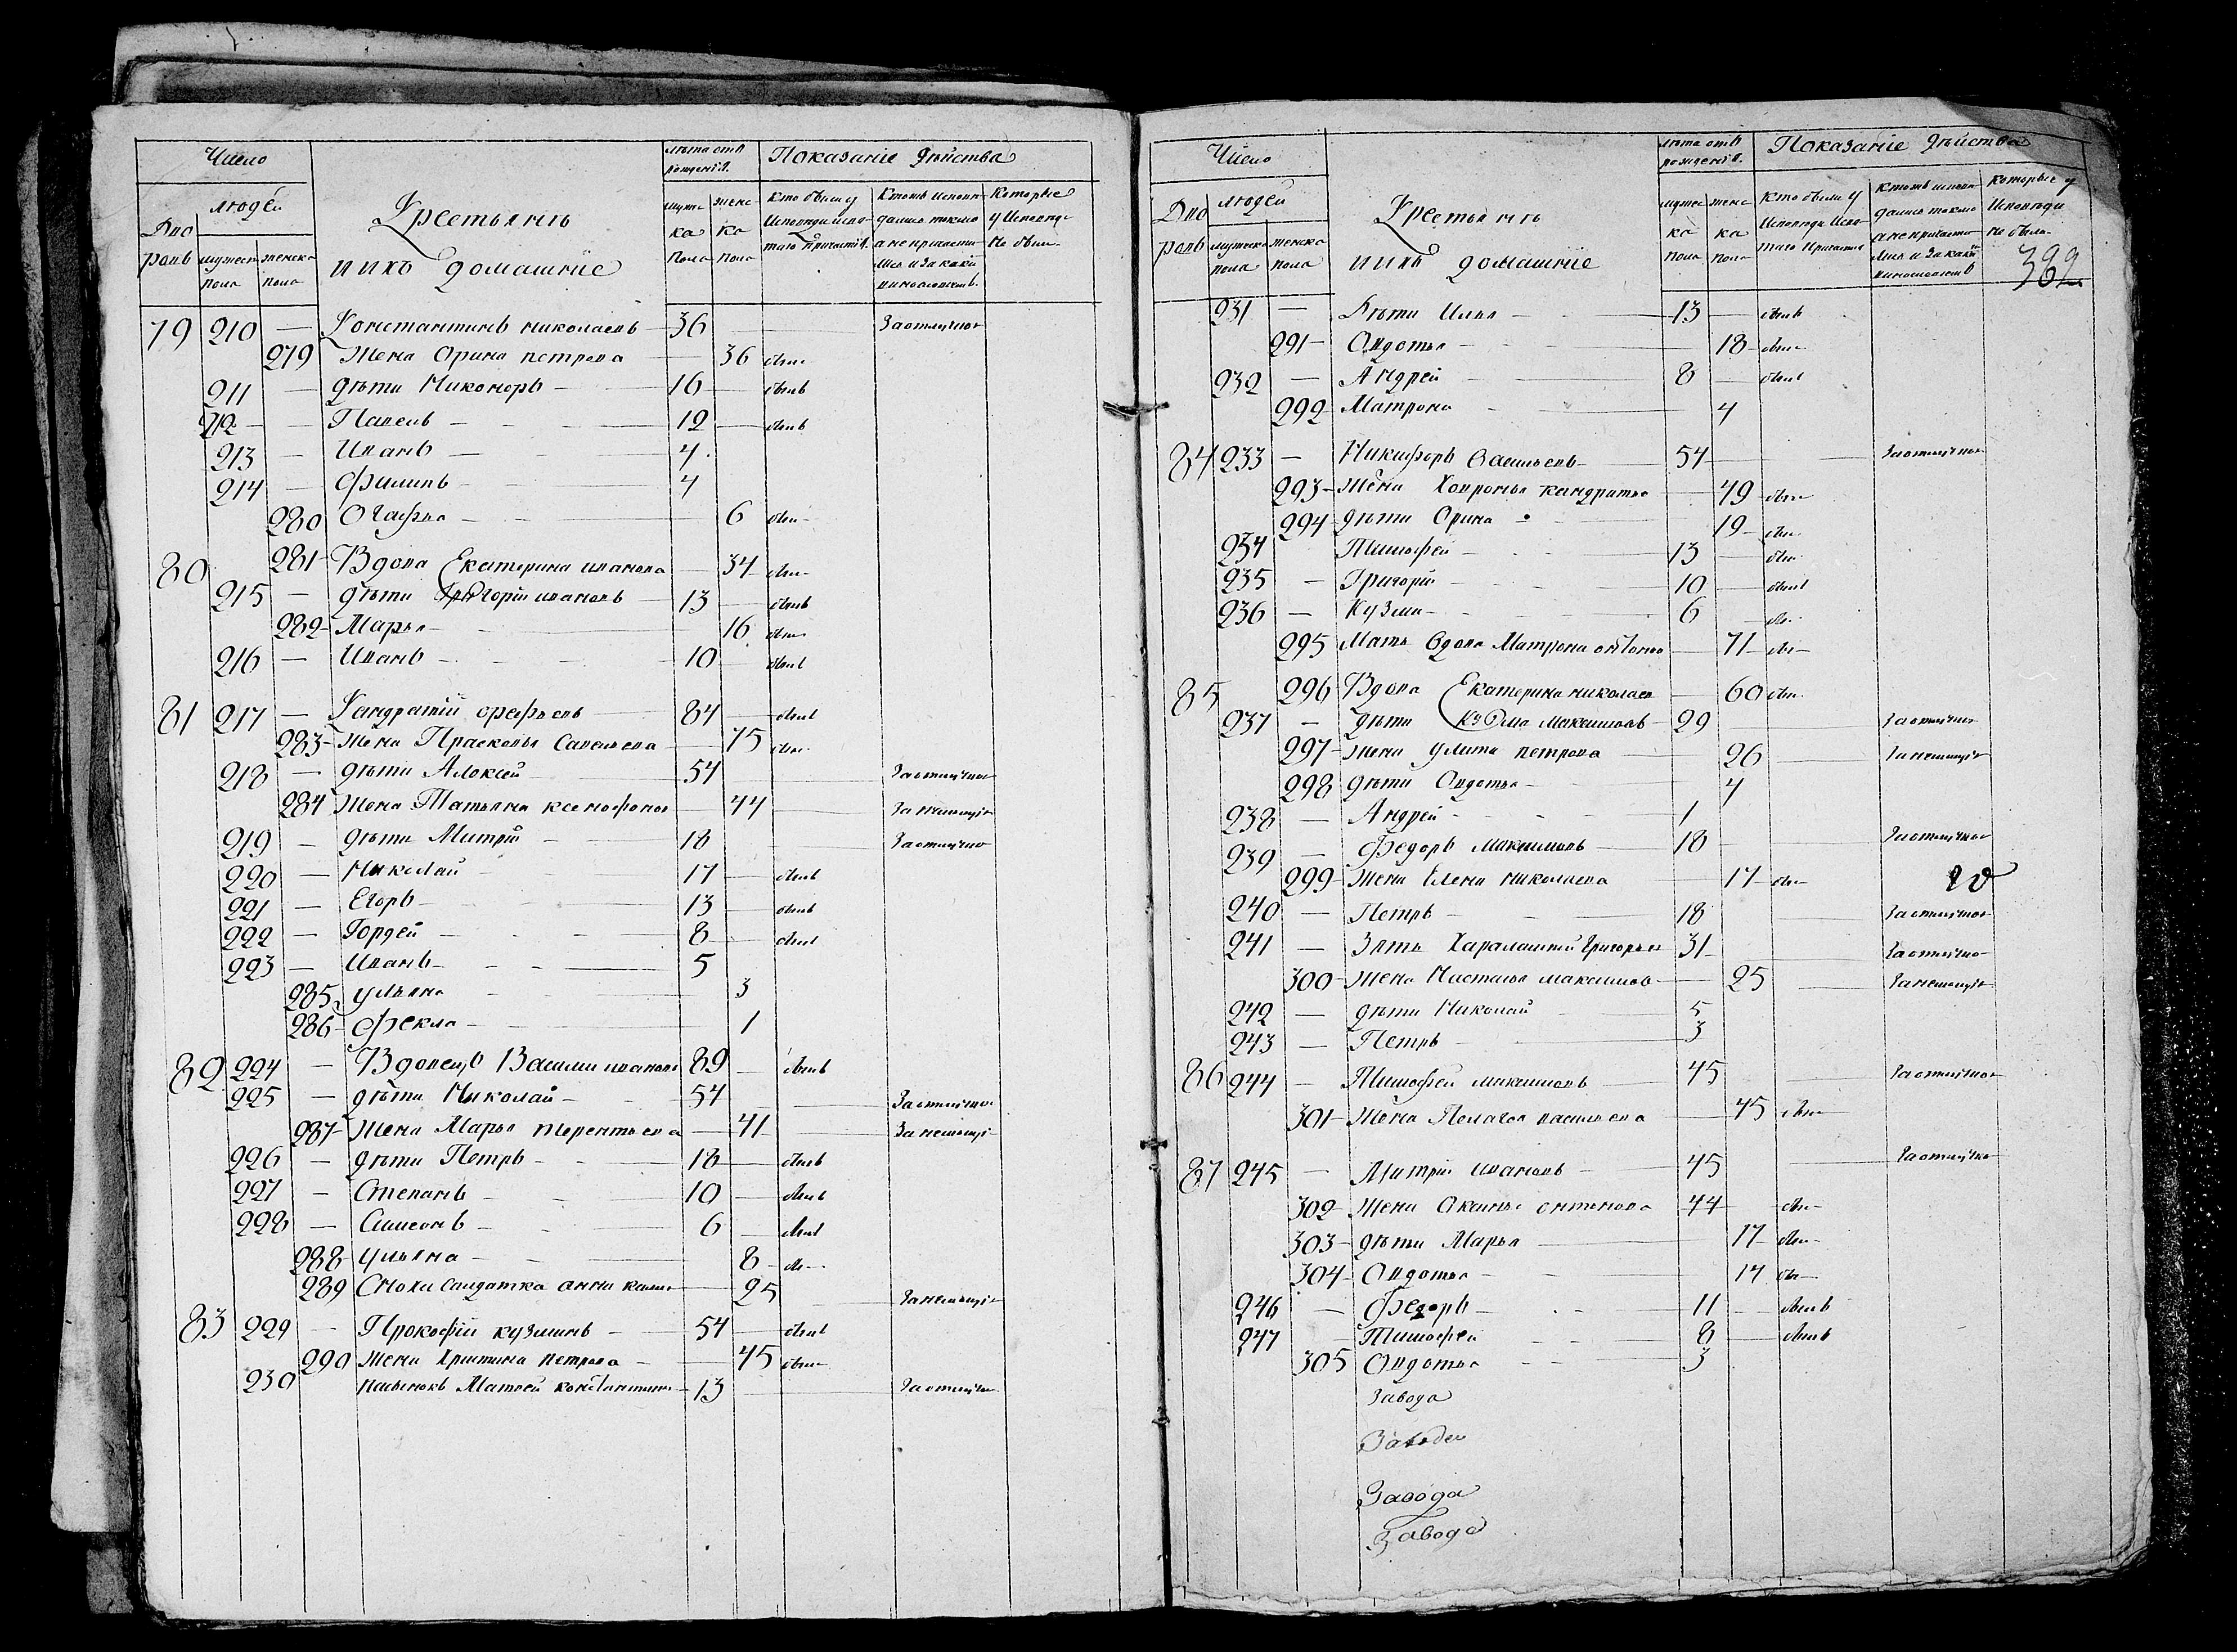 Число
людей
Дво
ровъ
мужеска
пола
женска
пола
Крестьянъ
и ихъ домашнїе
лѣта отъ
рожденїя
муже
ска
пола
женс
ка
пола
Показанїе дѣйства
Кто былъ у
Исповѣди и свя
таго причастїя
Кто жъ исповѣ
дался токмо
а не причасти
лся и за какимъ
винословїемъ
Которые
у Исповѣди
не были
79 210 — Константинъ николаевъ 36 — За отлучкою
279 Жена Орина петрова 36 былъ
211 — дѣти Никоноръ 16 — былъ
212 — Павелъ 12 — былъ
213 — Иванъ 4
214 — Филипъ 4
280 Огафья 6 была
80 281 Вдова Екатерина иванова 34 была
215 — дѣти Григорїй ивановъ 13 — былъ
282 Марья 16 была
216 — Иванъ 10 былъ
81 217 — Кандратїй орефьевъ 84 — былъ
283 Жена Прасковья Савельева 75 была
218 — дѣти Алексей 54 — За отлучкою
284 Жена Татьяна ксенофонов 44 —
219 — дѣти Митрїй 18 — За отлучкою
220 — Николай 17 — былъ
221 — Егоръ 13 — былъ
222 — Гордей 8 — былъ
223 — Иванъ 5
285 Ульяна 3
286 Фекла 1
82 224 — Вдовецъ Василий иванов 89 — былъ
225 — дѣти Николай 54 — За отлучкою
287 Жена Марья терентьева 41 —
226 — дѣти Петръ 18 — былъ
227 — Степанъ 10 — былъ
228 — Симеонъ 6 — былъ
288 Ульяна 8 была
289 Сноха Салдатка анна 25 —
83 229 — Прокофїй кузминъ 54 — былъ
290 Жена Христина петрова 45 была
230 пасынокъ Матвей константинов 13 — За отлучкою
Число
Дво
ровъ
людей
мужеска
пола
женска
пола
Крестьянъ
и ихъ домашнїе
лѣта отъ
рожденїя
мужес
ка
пола
женс
ка
пола
Показанїе дѣйства
Кто были у
Исповѣди и свя
таго причастия
Кто жъ исповѣ
дался токмо
а не причасти
лся и за какимъ
винословїемъ
Которые у
Исповѣди
не были
382
231 — Дѣти Илья 13 — былъ
291 — Овдотья 18 была
232 — Андрей 8 — былъ
292 Матрона 4
84 233 — Никифоръ Васильевъ 54 — За отлучкою
293 Жена Хавронья кандратьев 49 была
294 дѣти Орина 19 была
234 Тимофей 13 — былъ
235 — Григорїй 10 — былъ
236 — Кузма 6 былъ
295 Мать вдова Матрона 71 была
85 296 Вдова Екатерина николаев 60 была
237 — дѣти Кузма Максимовъ 29 — За отлучкою
297 Жена улита петрова 26 —
298 дѣти Овдотья 4
238 — Андрей 1
239 — Федоръ Максимовъ 18 — За отлучкою
299 Жена Елена николаева 17 была
240 — Петръ 18 За отлучкою
241 — Зять Харалампий Григорьев 31 За отлучкою
300 Жена Настасья максимов 25 —
242 — дѣти Николай 5
243 — Петръ 3
86 244 — Тимофей максимовъ 45 — За отлучкою
301 Жена Пелагея васильева 45 была
87 245 — Митрїй ивановъ 45 — За отлучкою
302 Жена Окинья онтонова 44 была
303 дѣти Марья 17 была
304 Овдотья 14 была
246 — Федоръ 11 — былъ
247 — Тимофей 8 — былъ
305 Овдотья 3
Завода
Завода
Завода
Завода